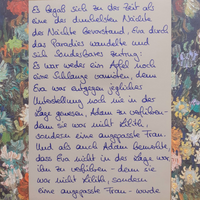 Es begab sich zu der Zeit als
eine der dunkelsten Nächte
der Nächte bevorstand, Eva durch
das Paradies wandelte und
sich Sonderbares zutrug:
Es war weder ein Apfel noch
eine Schlange vonnöten, denn
Eva war entgegen jeglicher
Unterstellung noch nie in der
Lage gewesen, Adam zu verführen-
denn sie war nicht Lilith,
sondern eine angepasste Frau.
Und als auch Adam bemerkte,
dass Eva nicht in der Lage war
ihn zu verführen - denn sie
war nicht Lilith, sondern
eine angepasste Frau - wurde